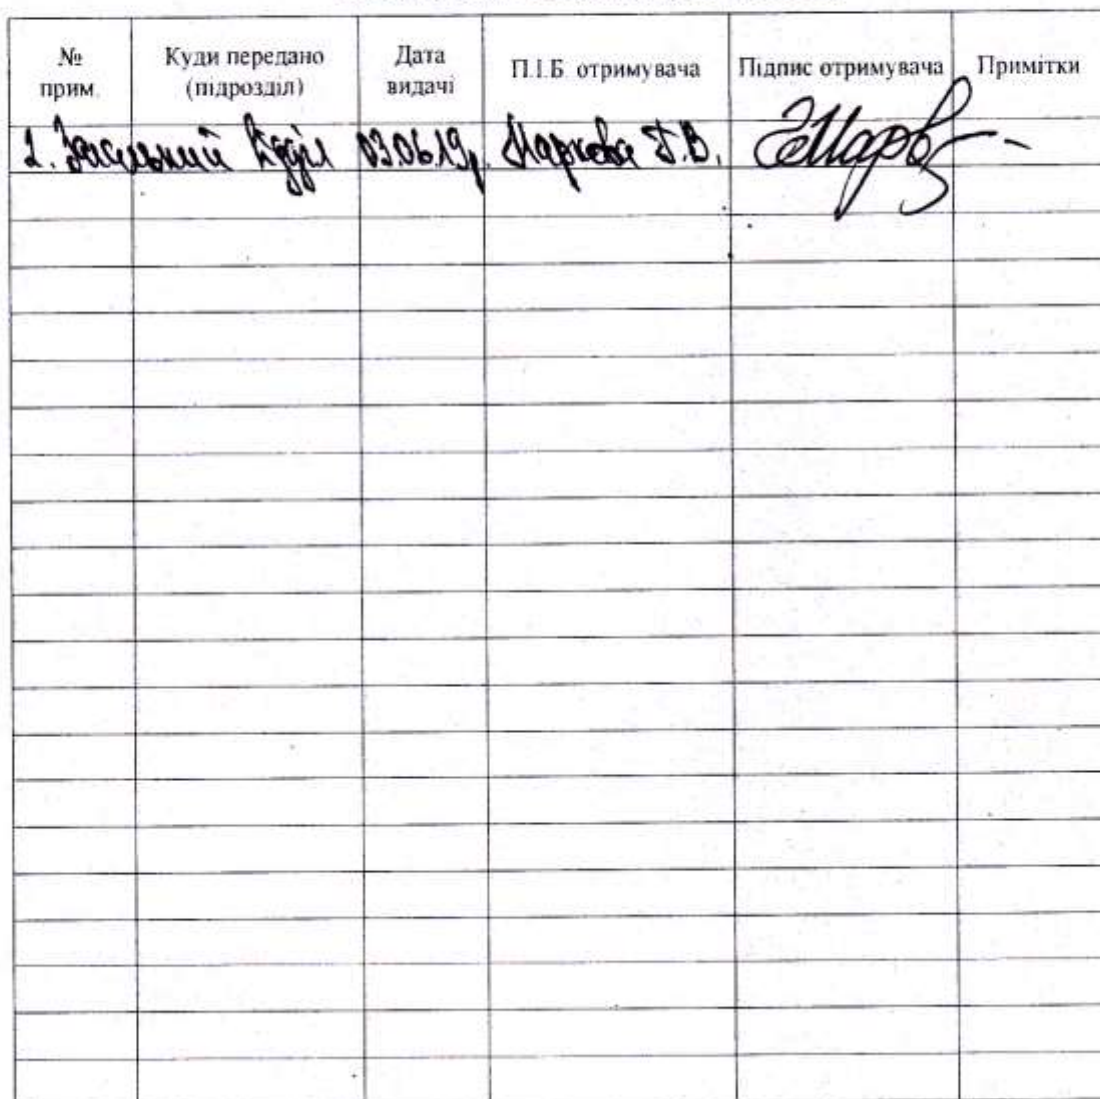 № прим.
Куди передано (підрозділ)
Дата видачі
П.І.Б. отримувача
Підпис отримувача
Примітки
2. Загальний відділ 03.06.19р. Маркова Г.В. -